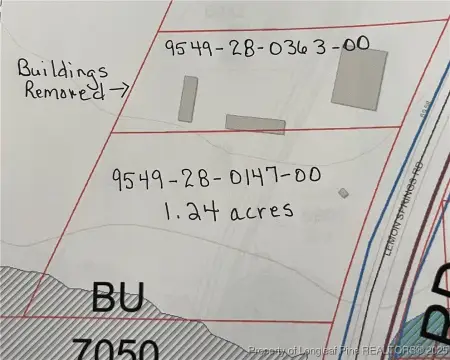 9549-28-0363-00
Buildings
Removed →
9549-28-0147-00
1.24 acres
LEMON SPRINGS RD
BU
7050
RD
Property of Longleaf Pine REALTORS® 2025